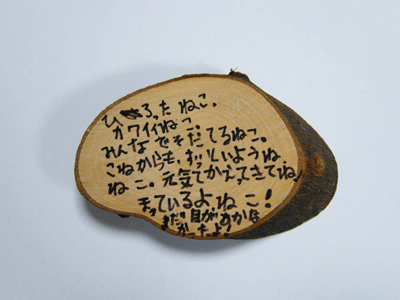 ひろったねこ。
カワイイねこ。
みんなでそだてるねこ。
こねからも、ずっといようね
ねこ。元気でかえってきてね
まっているよねこ!
まだ、目があかな
かったよ。